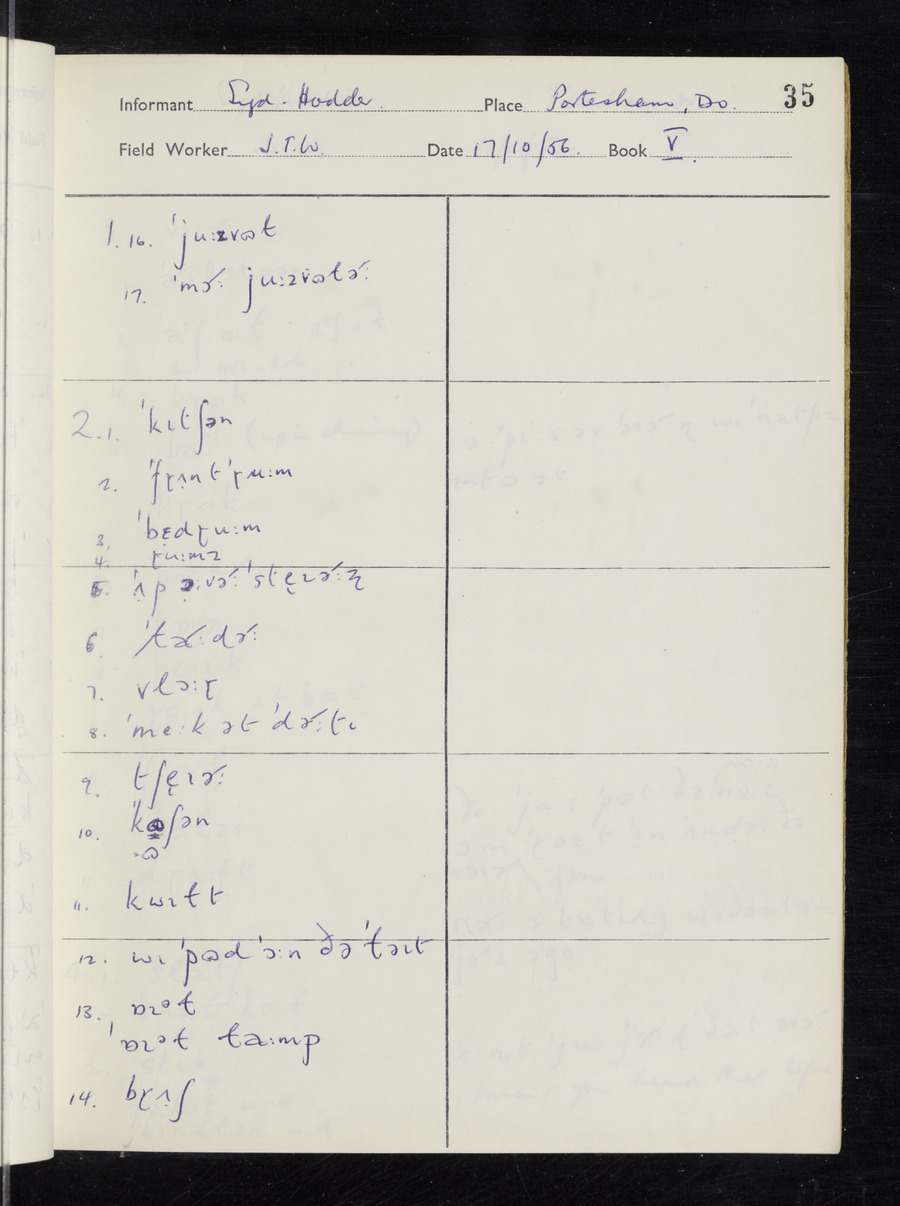 Informant Syd. Hodder. Place Portesham, Do. 35
Field Worker J.T.W. Date 17/10/56. Book V.
1. 16. ˈjuːzvɷɫ
17. ˈmɚː juːzvɷɫɚː
2. 1. ˈkɪtʃən
2. ˈfɽʌntˈɽuːm
3. ˈbɛdɽuːm
4. ɽuːmz
5.
6. ˈɫɚːdɚː
7. vlɔːɽ
8. ˈmeːk ət ˈdɚːtɪ
9. tʃɛɪɚː
10. kɷʃən
-ɷ
11. kwɪɫt
12. wɪ ˈpɷd ˈɔːn ðə ˈɫəɪt
13. ɒɪᵊɫ
ˈɒɪᵊɫ ɫaːmp
14. bɽʌʃ